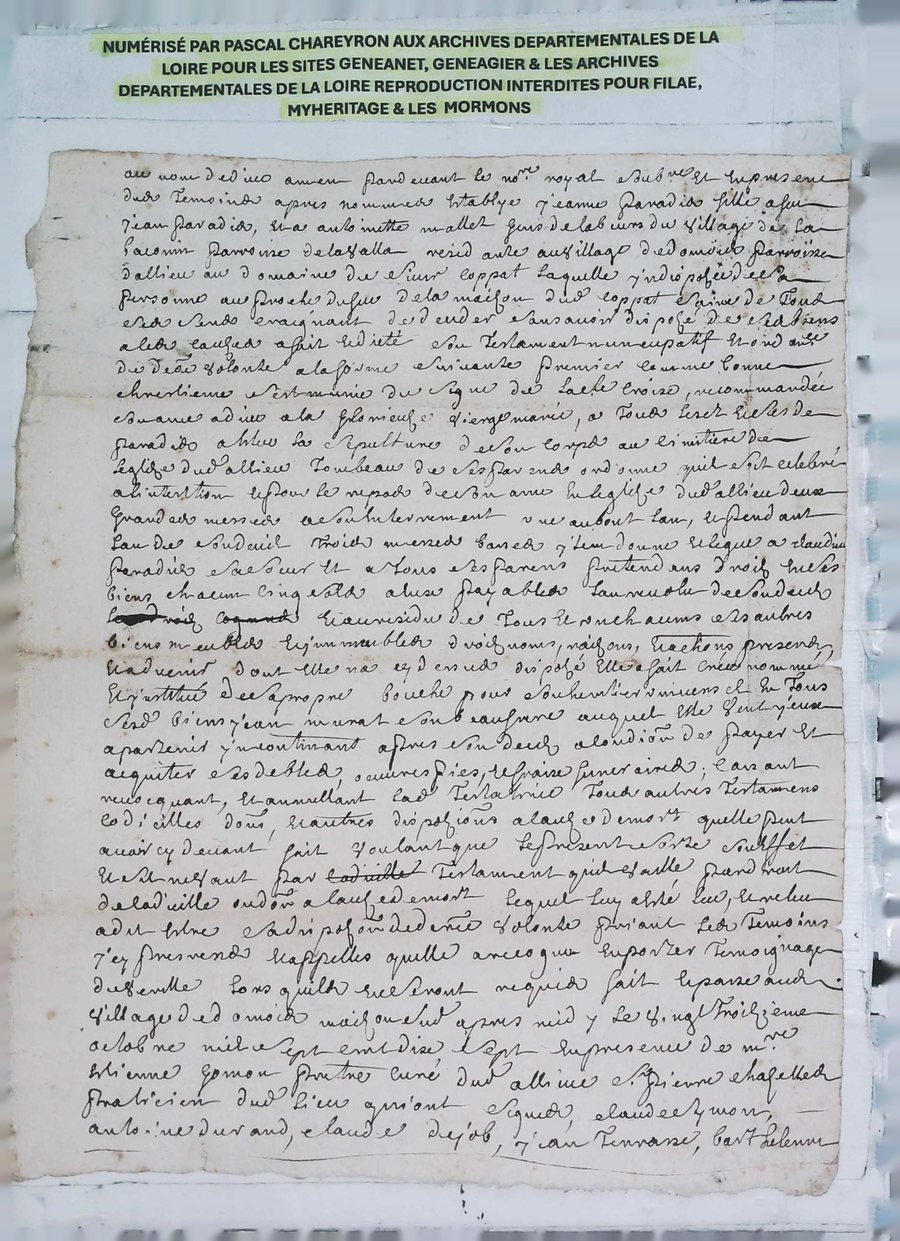 NUMÉRISÉ PAR PASCAL CHAREYRON AUX ARCHIVES DEPARTEMENTALES DE LA
LOIRE POUR LES SITES GENEANET, GENEAGIER & LES ARCHIVES
DEPARTEMENTALES DE LA LOIRE REPRODUCTION INTERDITES POUR FILAE,
MYHERITAGE & LES MORMONS
au nom de dieu amen pardevant le no.re royal soubne et en presence
des temoins apres nommes establye jeanne paradis fille a feu
jean paradis, et a antoinette mallet gens de labeurs du village de la
parroisse de lavalla residante au village de domois parroisse
dallieu au domaine du sieur coppat laquelle indisposée de sa
personne au proche du feu de la maison dud coppat saine de tous
ses sens craignant de deceder sans avoir disposé de ses biens
a ces causes a fait et dicté son testament nuncupatif et ord
de der volonte a la forme suivante premier comme bonne
chrestienne s'est munie du signe de la ste croix, recommandée
son ame a dieu a la glorieuse vierge marie, a tous les sts et stes de
paradis a esleu la sepulture de son corps au cimitiere de
leglize dud allieu tombeau de ses parens ordonne quil soit celebré
a lintention et pour le repos de son ame en leglize dud allieu deux
grandes messes a son enterrement une au bout lan, et pendant
lan de son deuil trois messes basses item donne et legue a claudine
paradis sa soeur et a tous ses parens pretendans droit en ses
biens chacun cinq sols a eux payables lan revolu de son deces
et au residu de tous et un chacuns ses autres
biens meubles et immeubles droits noms, raisons, et actions presens
et advenir dont elle na cy dessus disposé elle a fait crée nommé
et institué de sa propre bouche pour son heritier universel en tous
sesd biens jean murat son beaufrere auquel elle veut iceux
apartenir incontinant apres son deces a condion de payer et
acquiter ses debtes, oeuvres pies, et fraix funeraires; cassant
revocquant, et annullant lad testatrice tous autres testamens
codicilles dons, et autres dispozions a cause de mort quelle peut
avoir cy devant fait voulant que le present sorte son effet
et sil ne vaut par testament quil vaille par droit
de codicille ou don a cause de mort lequel luy a esté leu, et releu
a dit estre sa dispozon de derre volonte priant les temoins
icy presens et appelles quelle a recognu en porter temoignage
de verité lors quils en seront requis fait et passe aud
village de domois maison susd apres midy le vingt troizieme
octobre mil sept cent dix sept en presence de m.re
estienne gomon pretre curé dud allieu sr pierre chapelles
praticien dud lieu qui ont signés claude symon,
antoine durand, claude dejob, jean terrasse, barthelemy